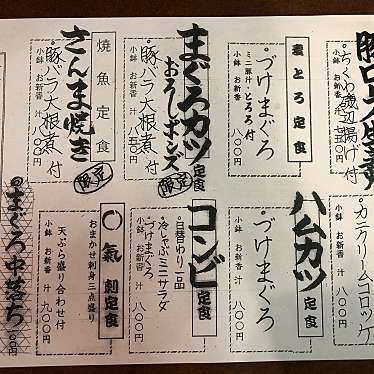 ちくわ磯辺揚げ付
小鉢 お新香 汁 八〇〇円
麦とろ定食
・づけまぐろ
ミニ豚汁・とろろ付
小鉢 お新香 八〇〇円
まぐろカツ定食
おろしポンズ
・豚バラ大根煮付
小鉢 お新香 汁 八五〇円
限定
焼魚定食
さんま焼き
・豚バラ大根煮付
小鉢 お新香 汁 八〇〇円
限定
カニクリームコロッケ
小鉢 お新香 汁
ハムカツ定食
・づけまぐろ
小鉢 お新香 汁 八〇〇円
コンビ定食
・日替わり一品
・冷しゃぶミニサラダ
・づけまぐろ
小鉢 お新香 汁 八〇〇円
〇氣刺定食
おまかせ刺身三点盛り
天ぷら盛り合わせ付
小鉢 お新香 汁 九〇〇円
まぐろ中落ち